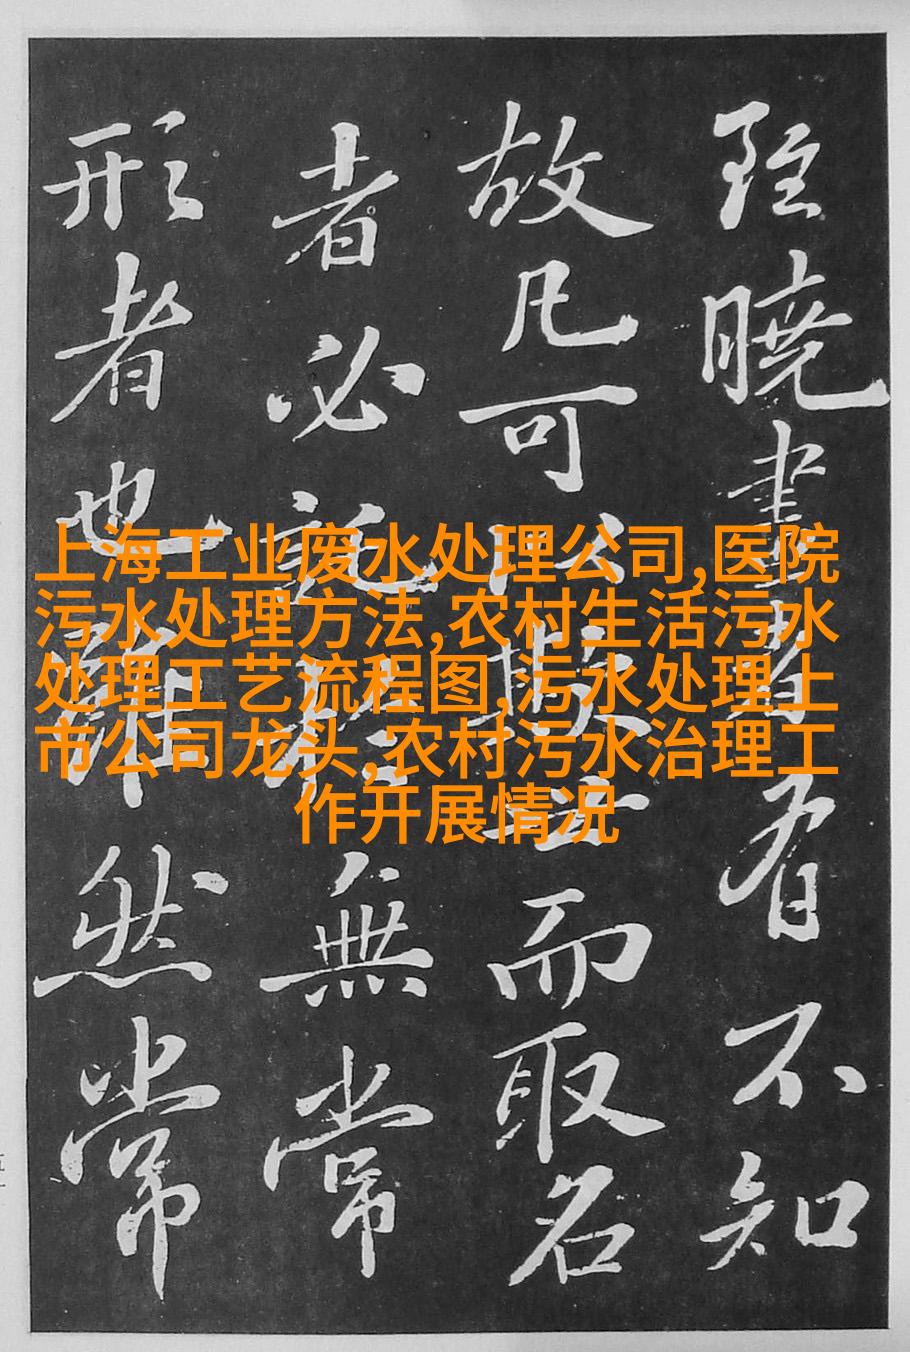 雖曉畫者有不知
故凡可以欺世而取名
者必託於無常
形者也雖然常
上海工业废水处理公司,医院
污水处理方法,农村生活污水
处理工艺流程图,污水处理上
市公司龙头,农村污水治理工
作开展情况